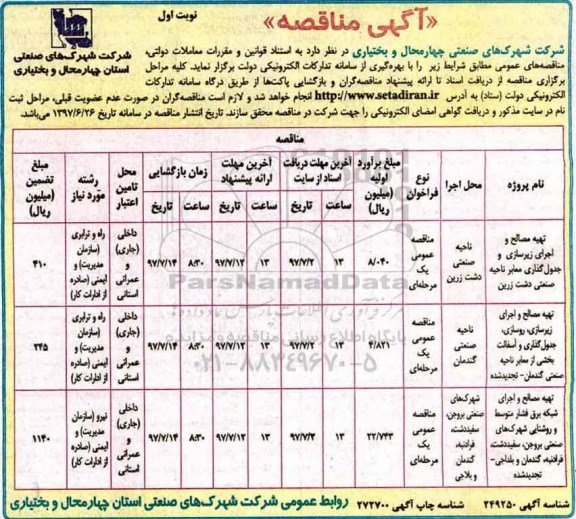 «آگهی مناقصه»
نوبت اول
شرکت شهرک‌های صنعتی
استان چهارمحال و بختیاری
شرکت شهرک‌های صنعتی چهارمحال و بختیاری در نظر دارد به استناد قوانین و مقررات معاملات دولتی،
مناقصه‌های عمومی مطابق شرایط زیر را با بهره‌گیری از سامانه تدارکات الکترونیکی دولت برگزار نماید. کلیه مراحل
برگزاری مناقصه از دریافت اسناد تا ارائه پیشنهاد مناقصه‌گران و بازگشایی پاکت‌ها از طریق درگاه سامانه تدارکات
الکترونیکی دولت (ستاد) به آدرس http://www.setadiran.ir انجام خواهد شد و لازم است مناقصه‌گران در صورت عدم عضویت قبلی، مراحل ثبت
نام در سایت مذکور و دریافت گواهی امضای الکترونیکی را جهت شرکت در مناقصه محقق سازند. تاریخ انتشار مناقصه در سامانه تاریخ ۱۳۹۷/۶/۲۶ می‌باشد.
مناقصه
نام پروژه
محل اجرا
نوع فراخوان
مبلغ برآورد اولیه (میلیون ریال)
آخرین مهلت دریافت اسناد از سایت
ساعت تاریخ
آخرین مهلت ارائه پیشنهاد
ساعت تاریخ
زمان بازگشایی
ساعت تاریخ
محل تامین اعتبار
رشته مورد نیاز
مبلغ تضمین (میلیون ریال)
تهیه مصالح و اجرای زیرسازی و جدول‌گذاری معابر ناحیه صنعتی دشت زرین
ناحیه صنعتی دشت زرین
مناقصه عمومی یک مرحله‌ای
۸/۰۴۰
۱۳ ۹۷/۷/۲
۱۳ ۹۷/۷/۱۲
۸:۳۰ ۹۷/۷/۱۴
داخلی (جاری) و عمرانی استانی
راه و ترابری (سازمان مدیریت) و ایمنی (صادره از ادارات کار)
۴۱۰
تهیه مصالح و اجرای زیرسازی، روسازی، جدول‌گذاری و آسفالت بخشی از معابر ناحیه صنعتی گندمان- تجدیدشده
ناحیه صنعتی گندمان
مناقصه عمومی یک مرحله‌ای
۴/۸۲۱
۱۳ ۹۷/۷/۲
۱۳ ۹۷/۷/۱۲
۸:۳۰ ۹۷/۷/۱۴
داخلی (جاری) و عمرانی استانی
راه و ترابری (سازمان مدیریت) و ایمنی (صادره از ادارات کار)
۲۴۵
تهیه مصالح و اجرای شبکه برق فشار متوسط و روشنایی شهرک‌های صنعتی بروجن، سفیددشت، فرادنبه، گندمان و بلداجی- تجدیدشده
شهرک‌های صنعتی بروجن، سفیددشت، فرادنبه، گندمان و بلاجی
مناقصه عمومی یک مرحله‌ای
۲۲/۷۴۳
۱۳ ۹۷/۷/۲
۱۳ ۹۷/۷/۱۲
۸:۳۰ ۹۷/۷/۱۴
داخلی (جاری) و عمرانی استانی
نیرو (سازمان مدیریت) و ایمنی (صادره از ادارات کار)
۱۱۴۰
ParsNamadData
پایگاه اطلاع رسانی مناقصه و مزایده
۰۲۱-۸۸۳۴۹۶۷۰-۵
شناسه آگهی ۲۴۹۲۵۰ شناسه چاپ آگهی ۲۷۲۷۰۰ روابط عمومی شرکت شهرک‌های صنعتی استان چهارمحال و بختیاری